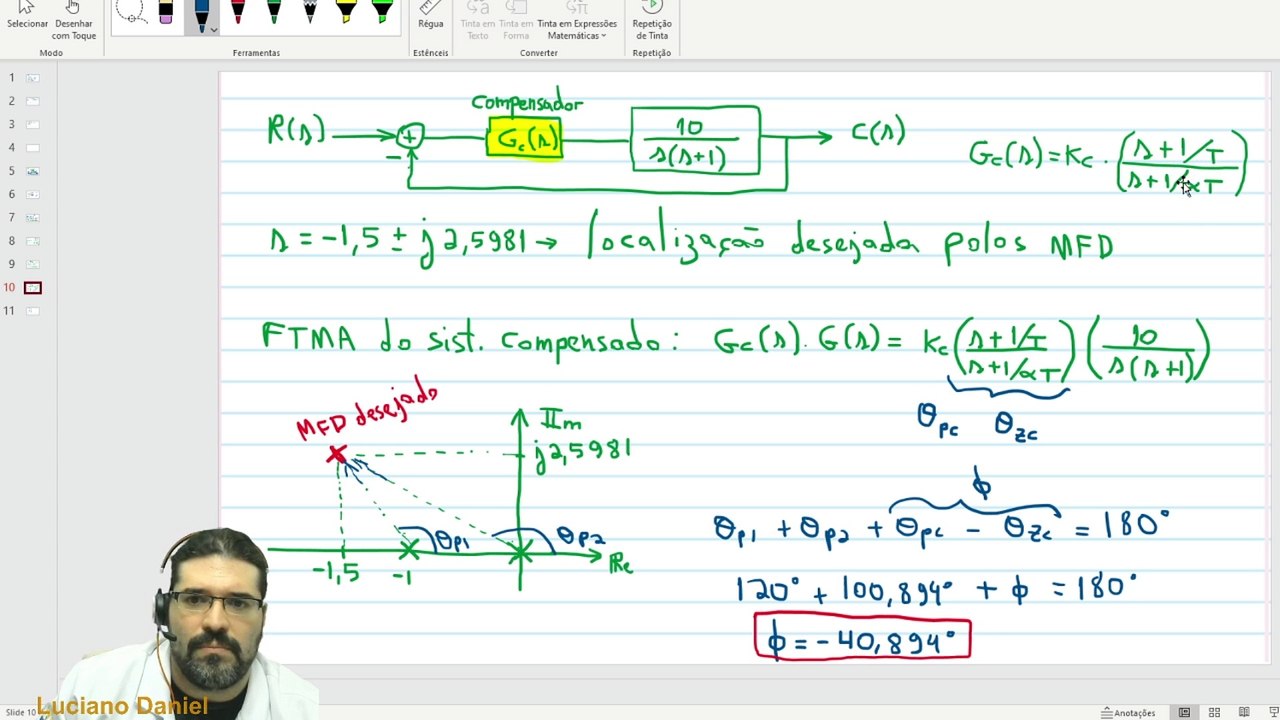 Selecionar
Desenhar com Toque
Régua
Tinta em Texto
Tinta em Forma
Tinta em Expressões Matemáticas
Repetição de Tinta
Modo
Ferramentas
Estênceis
Converter
Repetição
1
2
3
4
5
6
7
8
9
10
11
compensador
R(s)
+
−
Gc(s)
10 / s(s+1)
C(s)
Gc(s) = Kc · (s+1/T) / (s+1/αT)
s = -1,5 ± j2,5981 → localização desejada polos MFD
FTMA do sist. compensado: Gc(s).G(s) = Kc (s+1/T / s+1/αT) (10 / s(s+1))
θpc θzc
MFD desejado
IIm
j2,5981
θp1
θp2
-1,5
-1
Re
ϕ
θp1 + θp2 + θpc − θzc = 180°
120° + 100,894° + ϕ = 180°
ϕ = -40,894°
Luciano Daniel
Slide 10
Anotações